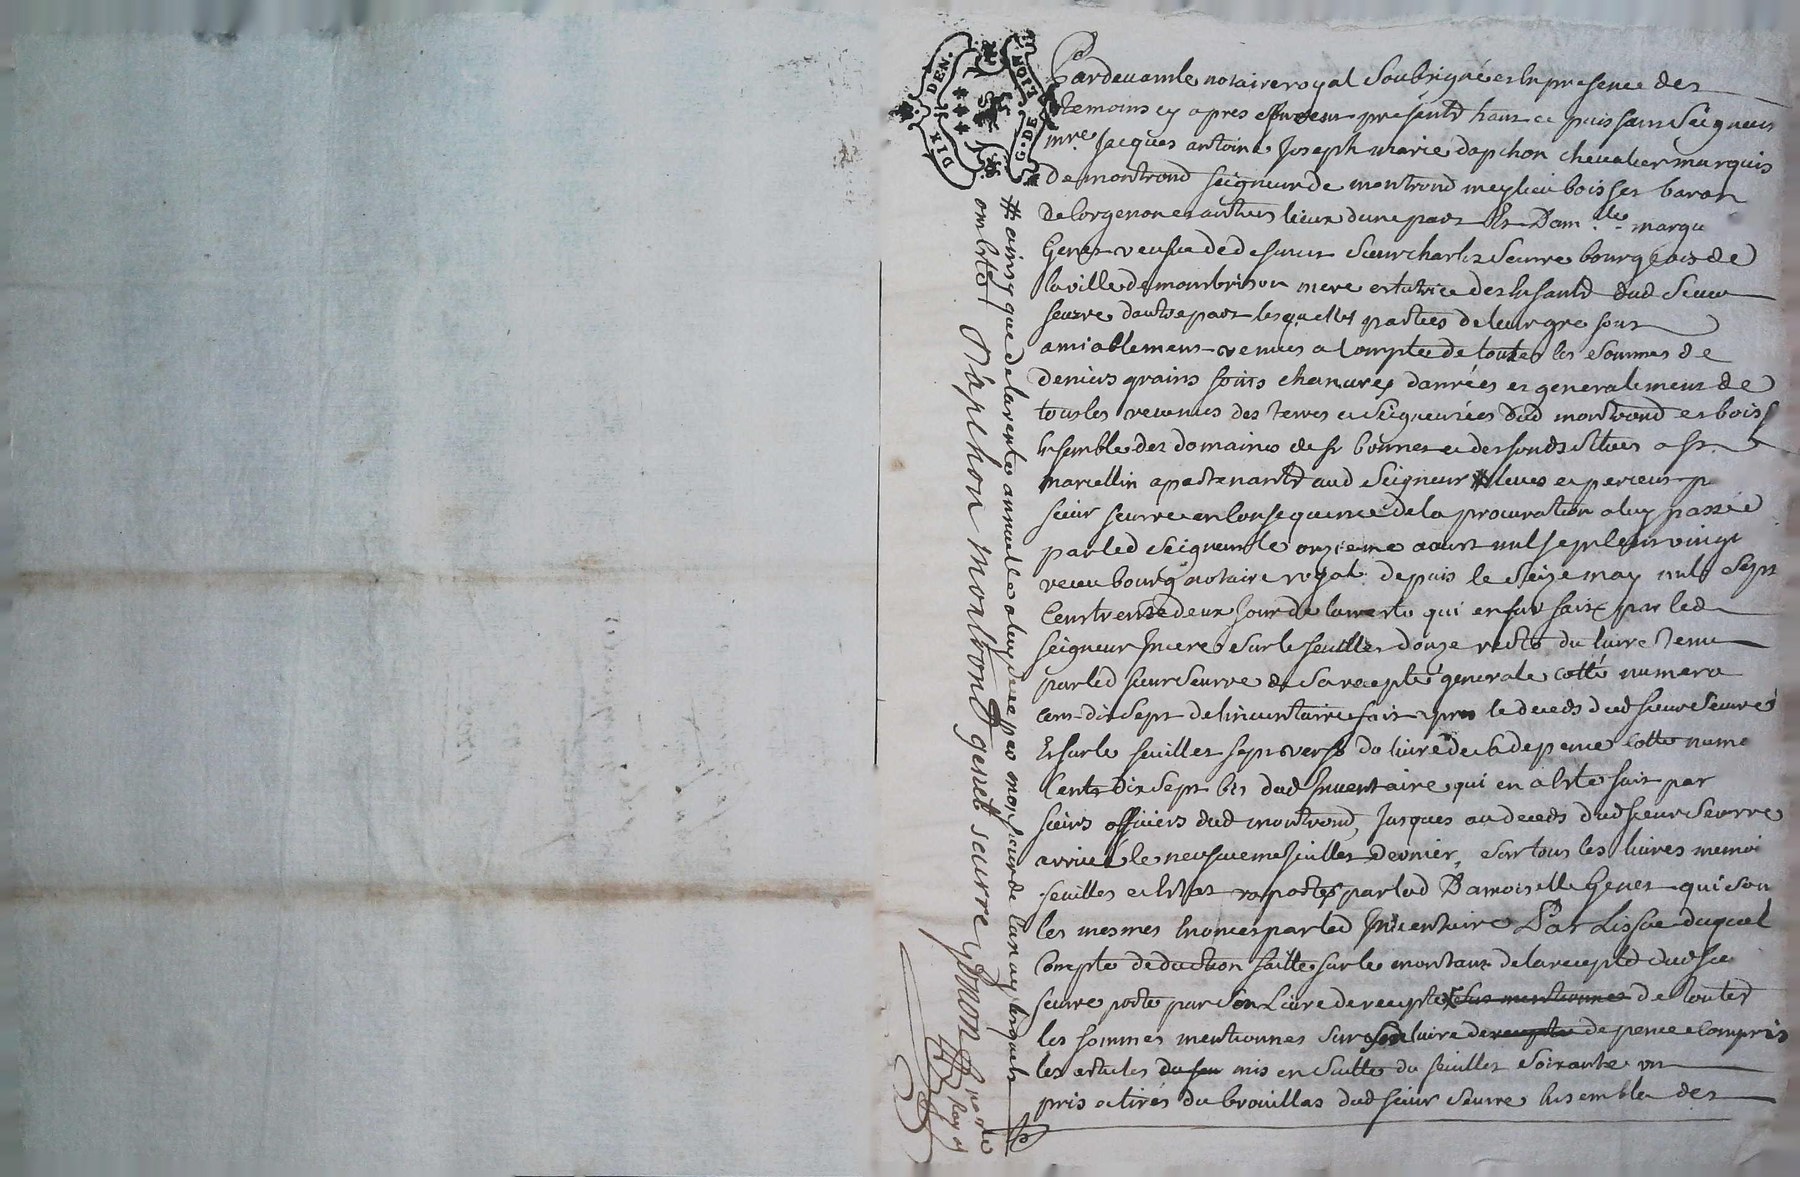 DIX DEN.
G. DE LION
Pardevant le notaire royal Soubsigné et En presence des
temoins cy apres furent presents haut et puissant Seigneur
mre. Jacques antoine Joseph marie dapchon chevalier marquis
de montrond seigneur de montrond meylieu boisset baron
de Corgenon et autres lieux dune part Et Dam.lle margu
Genet veufve de deffunct Sieur charles Seurre bourgeois de
la ville de monbrison mere et tutrice des Enfants dud Sieur
seurre dautre part lesquelles parties de leur gre sont
amiablement venues a Compte de toutes les Sommes de
deniers grains foins chanvres danrées et generalement de
tous les revenus des terres et Seigneuries dud montrond et boiss
Ensemble des domaines de st bonnet et des fonds situes a st.
marcellin apartenants aud Seigneur # leues et perceus p
sieur seurre en Consequence de la procuration a luy passée
par led Seigneur le onzieme aoust mil sept Cent vingt
receu bourg notaire royal depuis le Seize may mil Sept
Cent trente deux Jour de larresté qui en fut fait par led
seigneur sur le feuillet douze recto du livre tenu
par led sieur Seurre de Sa recepte generale cotté numero
cent dix Sept de linventaire fait apres le deceds dud sieur Seurre
Et sur le feuillet sept verso du livre de la depence Cotte nume
Cent Dix Sept bis dud Inventaire qui en a Esté fait par
sieurs officiers dud montrond, Jusques au deceds dud sieur Seurre
arrivé le neufvieme Juillet dernier, Sur tous les livres memoi
feuilles et Estat raportés par lad Damoiselle Genet qui son
les mesmes Enoncés par led Inventaire Par Lissue duquel
Compte deduction faitte sur le montant de la recepte dud sie
seurre porté par Son Livre de recepte sus mentionnes de toutes
les sommes mentionnes sur Son livre de recepte depence Compris
les articles du feu mis en Suitte du feuillet Soixante un
pris et tirés du brouillas dud sieur Seurre Ensemble des
# ainsy que de la rente annuelle a luy deue par monsieur de
ombre
Dapchon montrond genet seurre